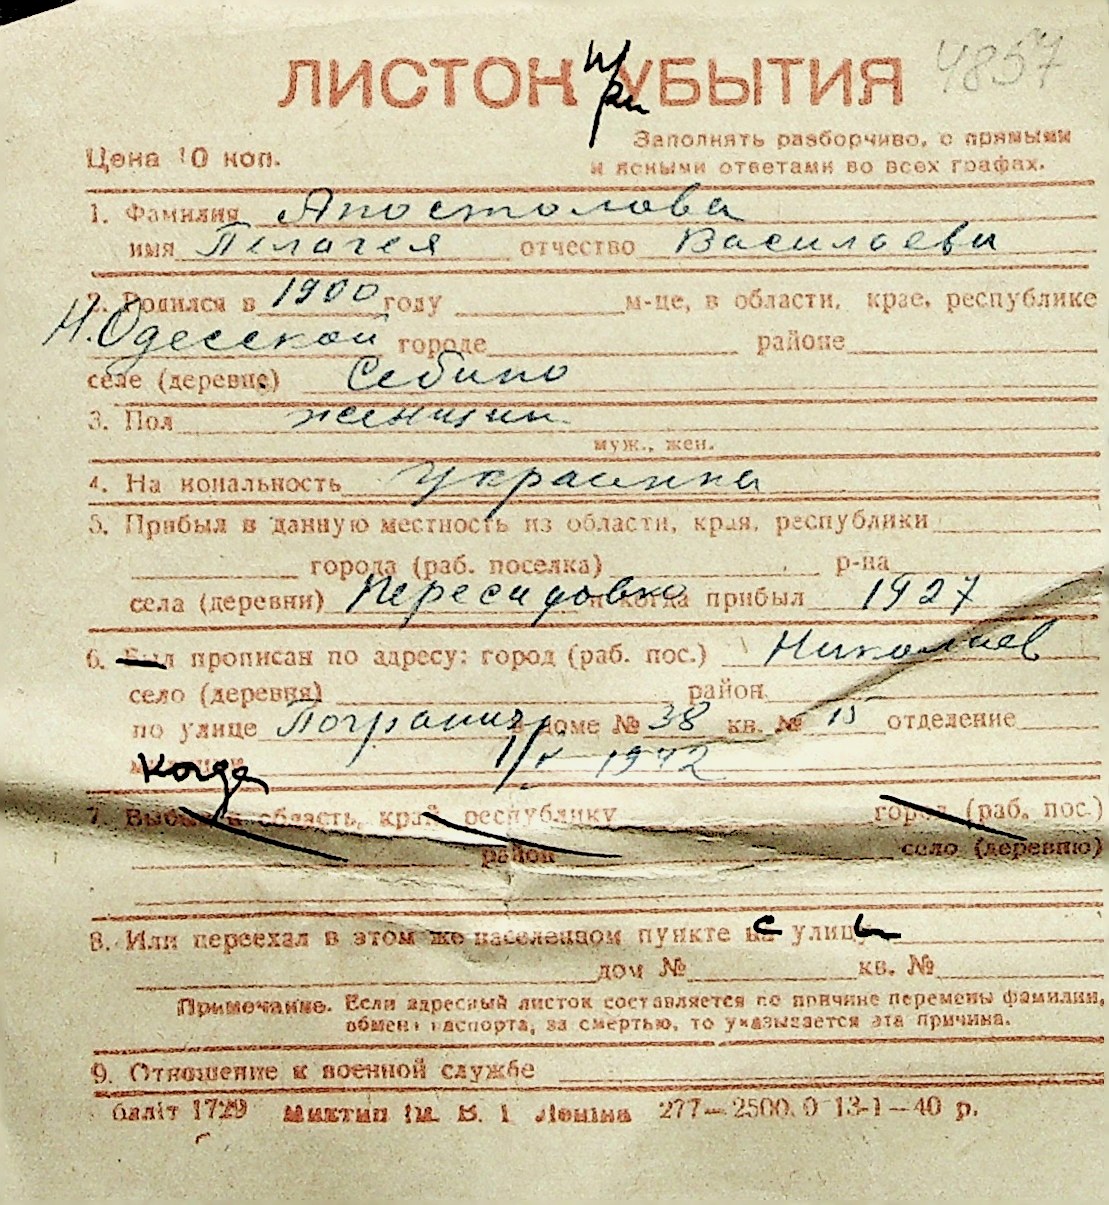 4857
ЛИСТОК при УБЫТИЯ
Цена 10 коп.
Заполнять разборчиво, с прямыми
и ясными ответами во всех графах.
1. Фамилия Апостолова
имя Пелагея отчество Васильевн
2. Родился в 1900 году м-це, в области, крае, республике
Н. Одесской городе районе
селе (деревне) Себино
3. Пол женщин
муж., жен.
4. Национальность украинка
5. Прибыл в данную местность из области, края, республики
города (раб. поселка) р-на
села (деревни) Пересадовка и когда прибыл 1927
6. Был прописан по адресу: город (раб. пос.) Николаев
село (деревня) район
по улице Погранич. в доме № 38 кв. № 15 отделение
когда 1942
7. Выбыл в область, край, республику город (раб. пос.)
район село (деревню)
8. Или переехал в этом же населенном пункте с улицы
дом № кв. №
Примечание. Если адресный листок составляется по причине перемены фамилии,
обмена паспорта, за смертью, то указывается эта причина.
9. Отношение к военной службе
бліт 1729 Миктип ім. В. І. Леніна 277—2500.0 13-1—40 р.